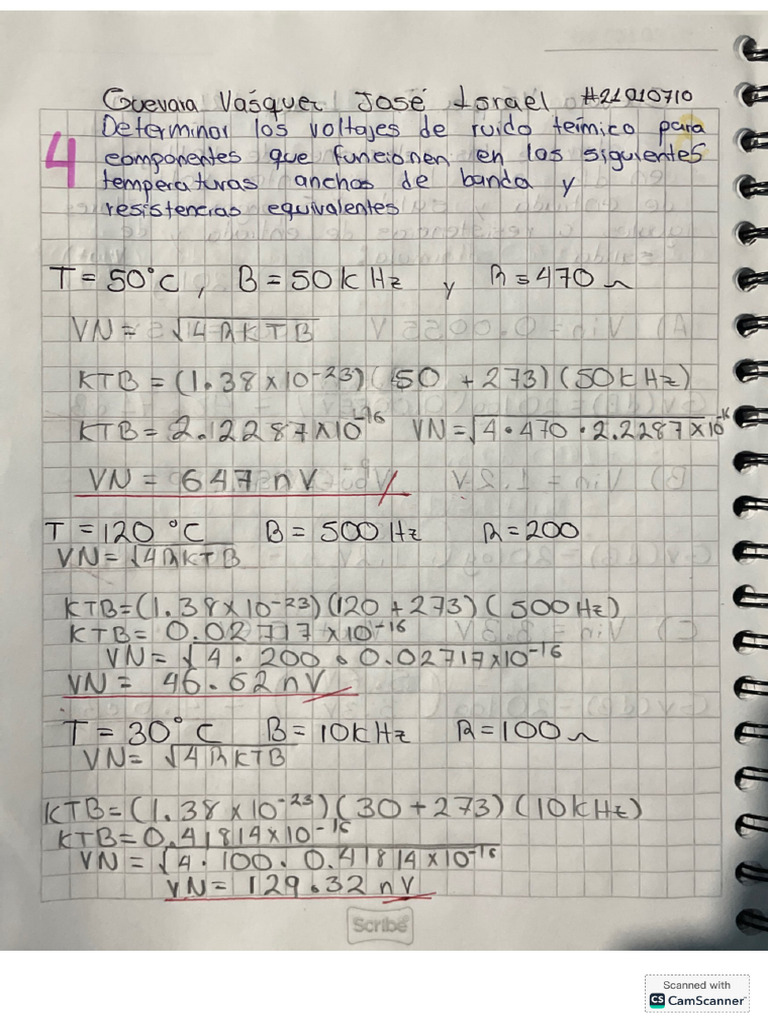 Guevara Vásquez José Israel #21010710
4
Determinar los voltajes de ruido teímico para
componentes que funcionen en los siguientes
temperaturas anchos de banda y
resistencias equivalentes
T = 50°C, B = 50k Hz y R = 470 Ω
VN = √4RKTB
KTB = (1.38 x 10⁻²³) (50 + 273) (50k Hz)
KTB = 2.12287 x10⁻¹⁶ VN = √4 • 470 • 2.2287 x 10⁻¹⁶
VN = 647 nV
T = 120 °C B = 500 Hz R = 200
VN = √4RKTB
KTB = (1.38 x 10⁻²³) (120 + 273) (500 Hz)
KTB = 0.02717 x10⁻¹⁶
VN = √4 • 200 • 0.02717 x10⁻¹⁶
VN = 46.62 nV
T = 30°C B = 10k Hz R = 100 Ω
VN = √4RKTB
KTB = (1.38 x 10⁻²³) (30 + 273) (10k Hz)
KTB = 0.41814 x 10⁻¹⁶
VN = √4 • 100 • 0.41814 x 10⁻¹⁶
VN = 129.32 nV
Scribe
Scanned with
CS CamScanner